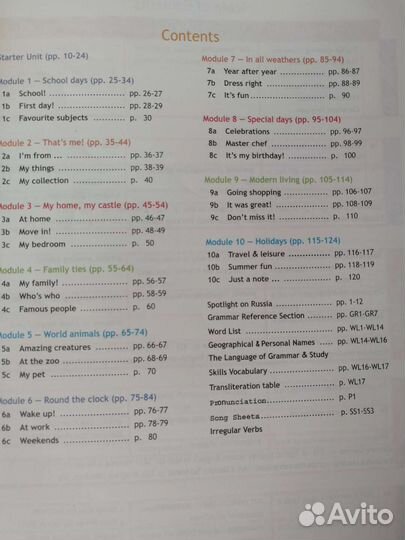 Contents
Starter Unit (pp. 10-24)
Module 1 – School days (pp. 25-34)
1a School! .................. pp. 26-27
1b First day! ................ pp. 28-29
1c Favourite subjects ...... p. 30
Module 2 – That's me! (pp. 35-44)
2a I'm from ... .............. pp. 36-37
2b My things ................ pp. 38-39
2c My collection ............ p. 40
Module 3 – My home, my castle (pp. 45-54)
3a At home .................. pp. 46-47
3b Move in! ................. pp. 48-49
3c My bedroom ............... p. 50
Module 4 – Family ties (pp. 55-64)
4a My family! ............... pp. 56-57
4b Who's who ................ pp. 58-59
4c Famous people ............ p. 60
Module 5 – World animals (pp. 65-74)
5a Amazing creatures ........ pp. 66-67
5b At the zoo ............... pp. 68-69
5c My pet ................... p. 70
Module 6 – Round the clock (pp. 75-84)
6a Wake up! ................. pp. 76-77
6b At work .................. pp. 78-79
6c Weekends ................. p. 80
Module 7 – In all weathers (pp. 85-94)
7a Year after year ............... pp. 86-87
7b Dress right ................... pp. 88-89
7c It's fun ...................... p. 90
Module 8 – Special days (pp. 95-104)
8a Celebrations .................. pp. 96-97
8b Master chef ................... pp. 98-99
8c It's my birthday! ............. p. 100
Module 9 – Modern living (pp. 105-114)
9a Going shopping ................ pp. 106-107
9b It was great! ................. pp. 108-109
9c Don't miss it! ................ p. 110
Module 10 – Holidays (pp. 115-124)
10a Travel & leisure ............. pp. 116-117
10b Summer fun ................... pp. 118-119
10c Just a note ... .............. p. 120
Spotlight on Russia .............. pp. 1-12
Grammar Reference Section ........ pp. GR1-GR7
Word List ........................ pp. WL1-WL14
Geographical & Personal Names .... pp. WL14-WL16
The Language of Grammar & Study
Skills Vocabulary ................ pp. WL16-WL17
Transliteration table ............ p. WL17
Pronunciation..................... p. P1
Song Sheets ...................... pp. SS1-SS3
Irregular Verbs
Avito